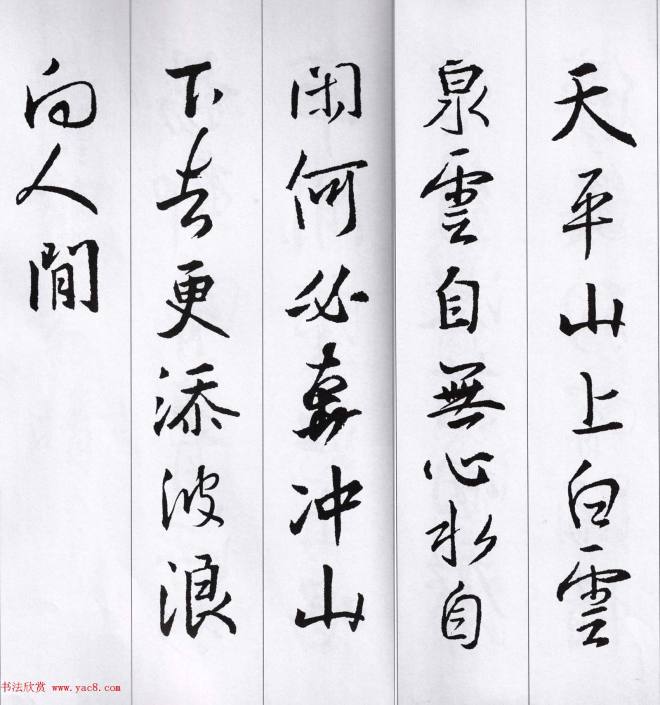 天平山上白雲
泉雲自無心水自
閑何必奔冲山
下去更添波浪
向人間
书法欣赏 www.yac8.com